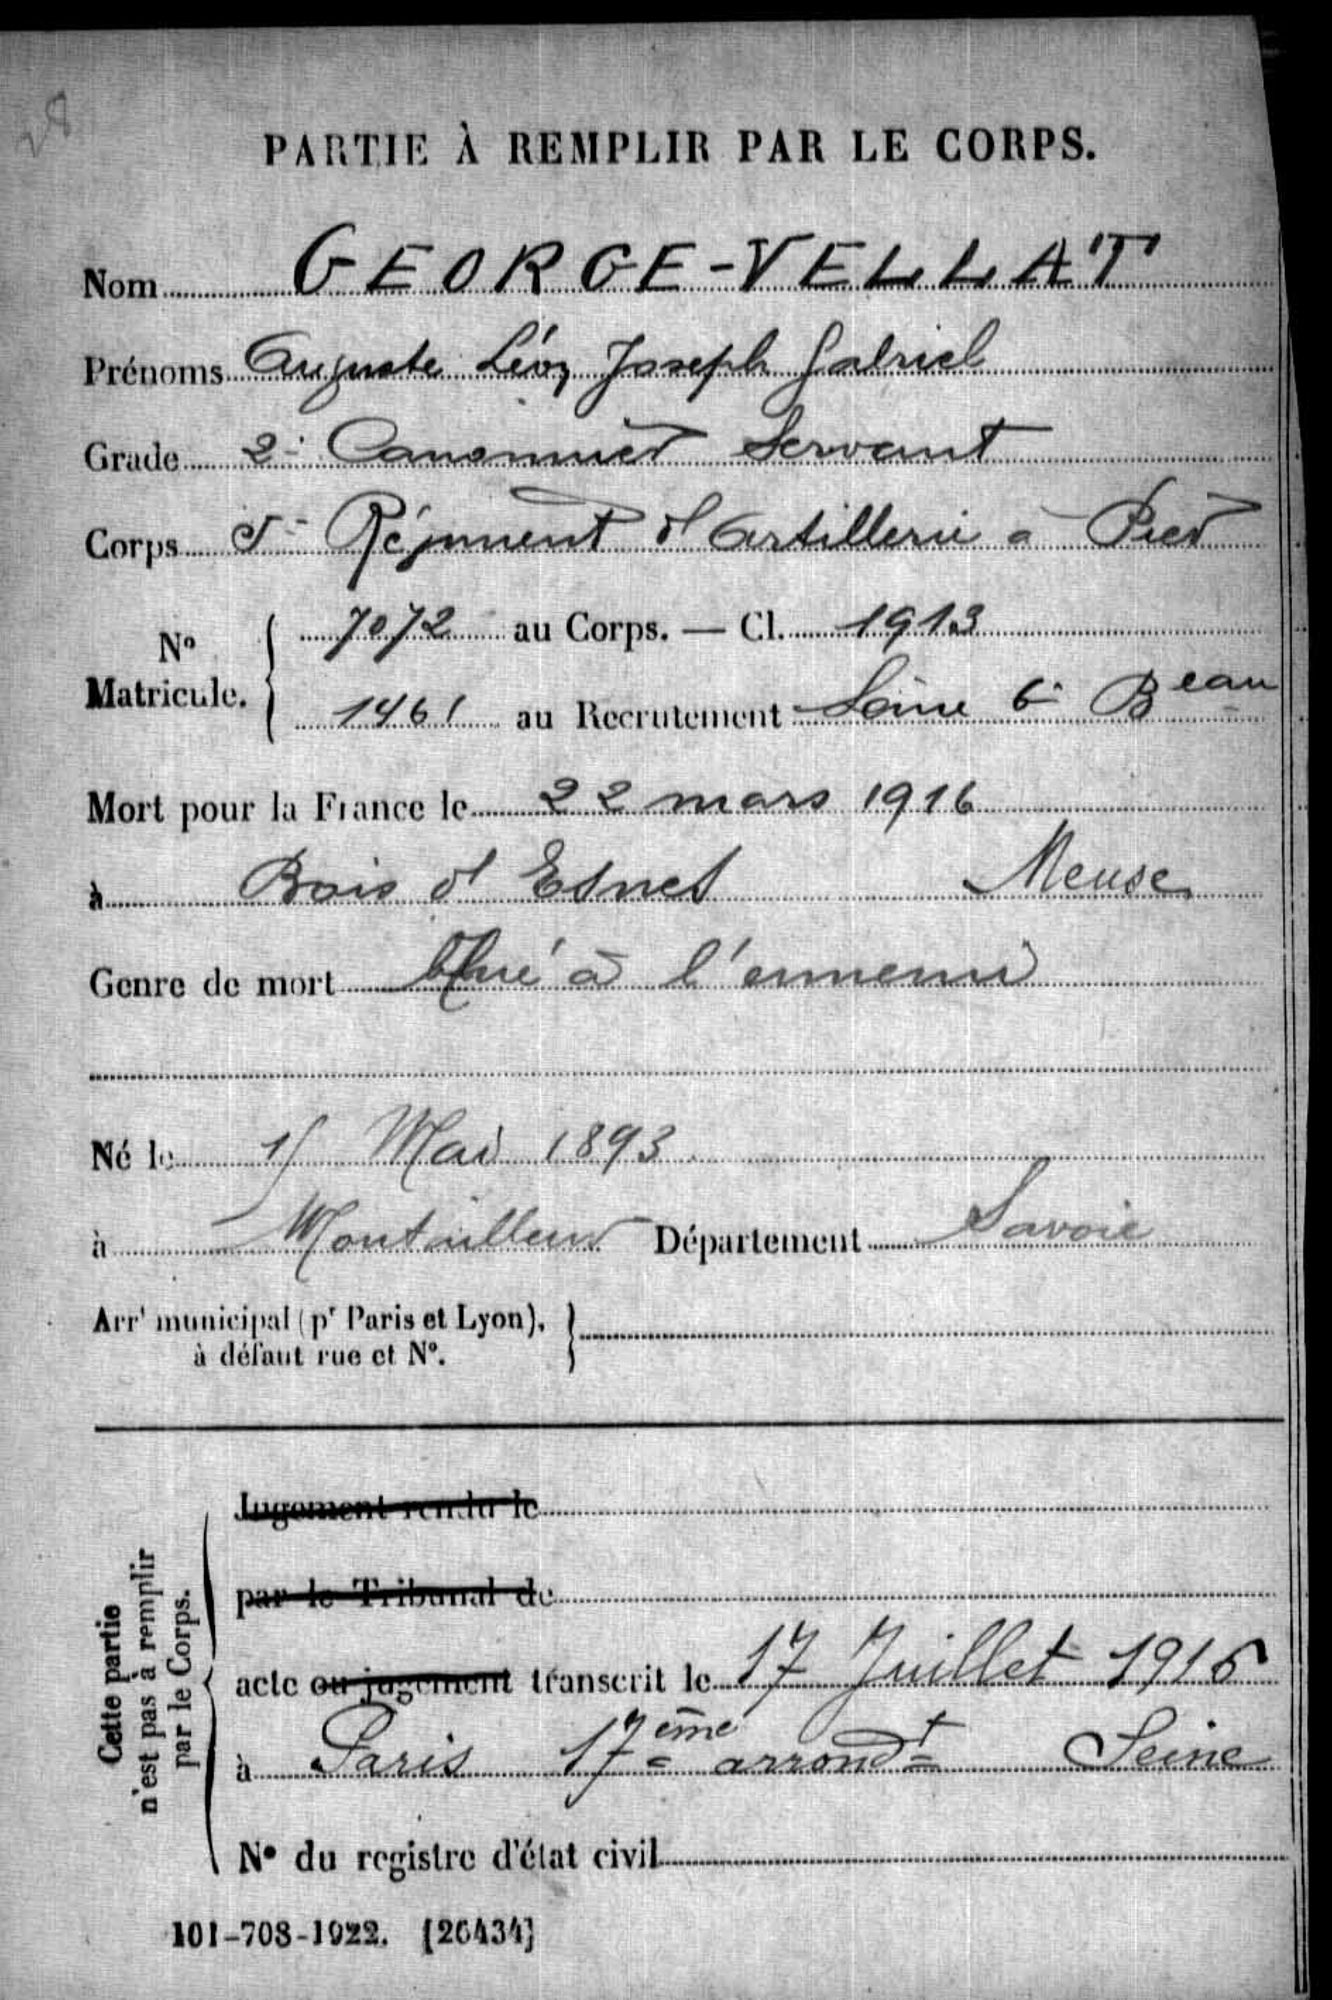 28
PARTIE À REMPLIR PAR LE CORPS.
Nom GEORGE-VELLAT
Prénoms Auguste Léon Joseph Gabriel
Grade 2e Canonnier Servant
Corps 5e Régiment d'Artillerie à Pied
No Matricule. { 7072 au Corps. — Cl. 1913
1461 au Recrutement Seine 6e Beau
Mort pour la France le 22 mars 1916
à Bois d'Esnes Meuse
Genre de mort tué à l'ennemi
Né le Mai 1893
à Département Savoie
Arrt municipal (pr Paris et Lyon), à défaut rue et No.
Cette partie n'est pas à remplir par le Corps.
Jugement rendu le
par le Tribunal de
acte ou jugement transcrit le 17 Juillet 1916
à Paris 17ème arrondt Seine
No du registre d'état civil
101-708-1922. [26434]